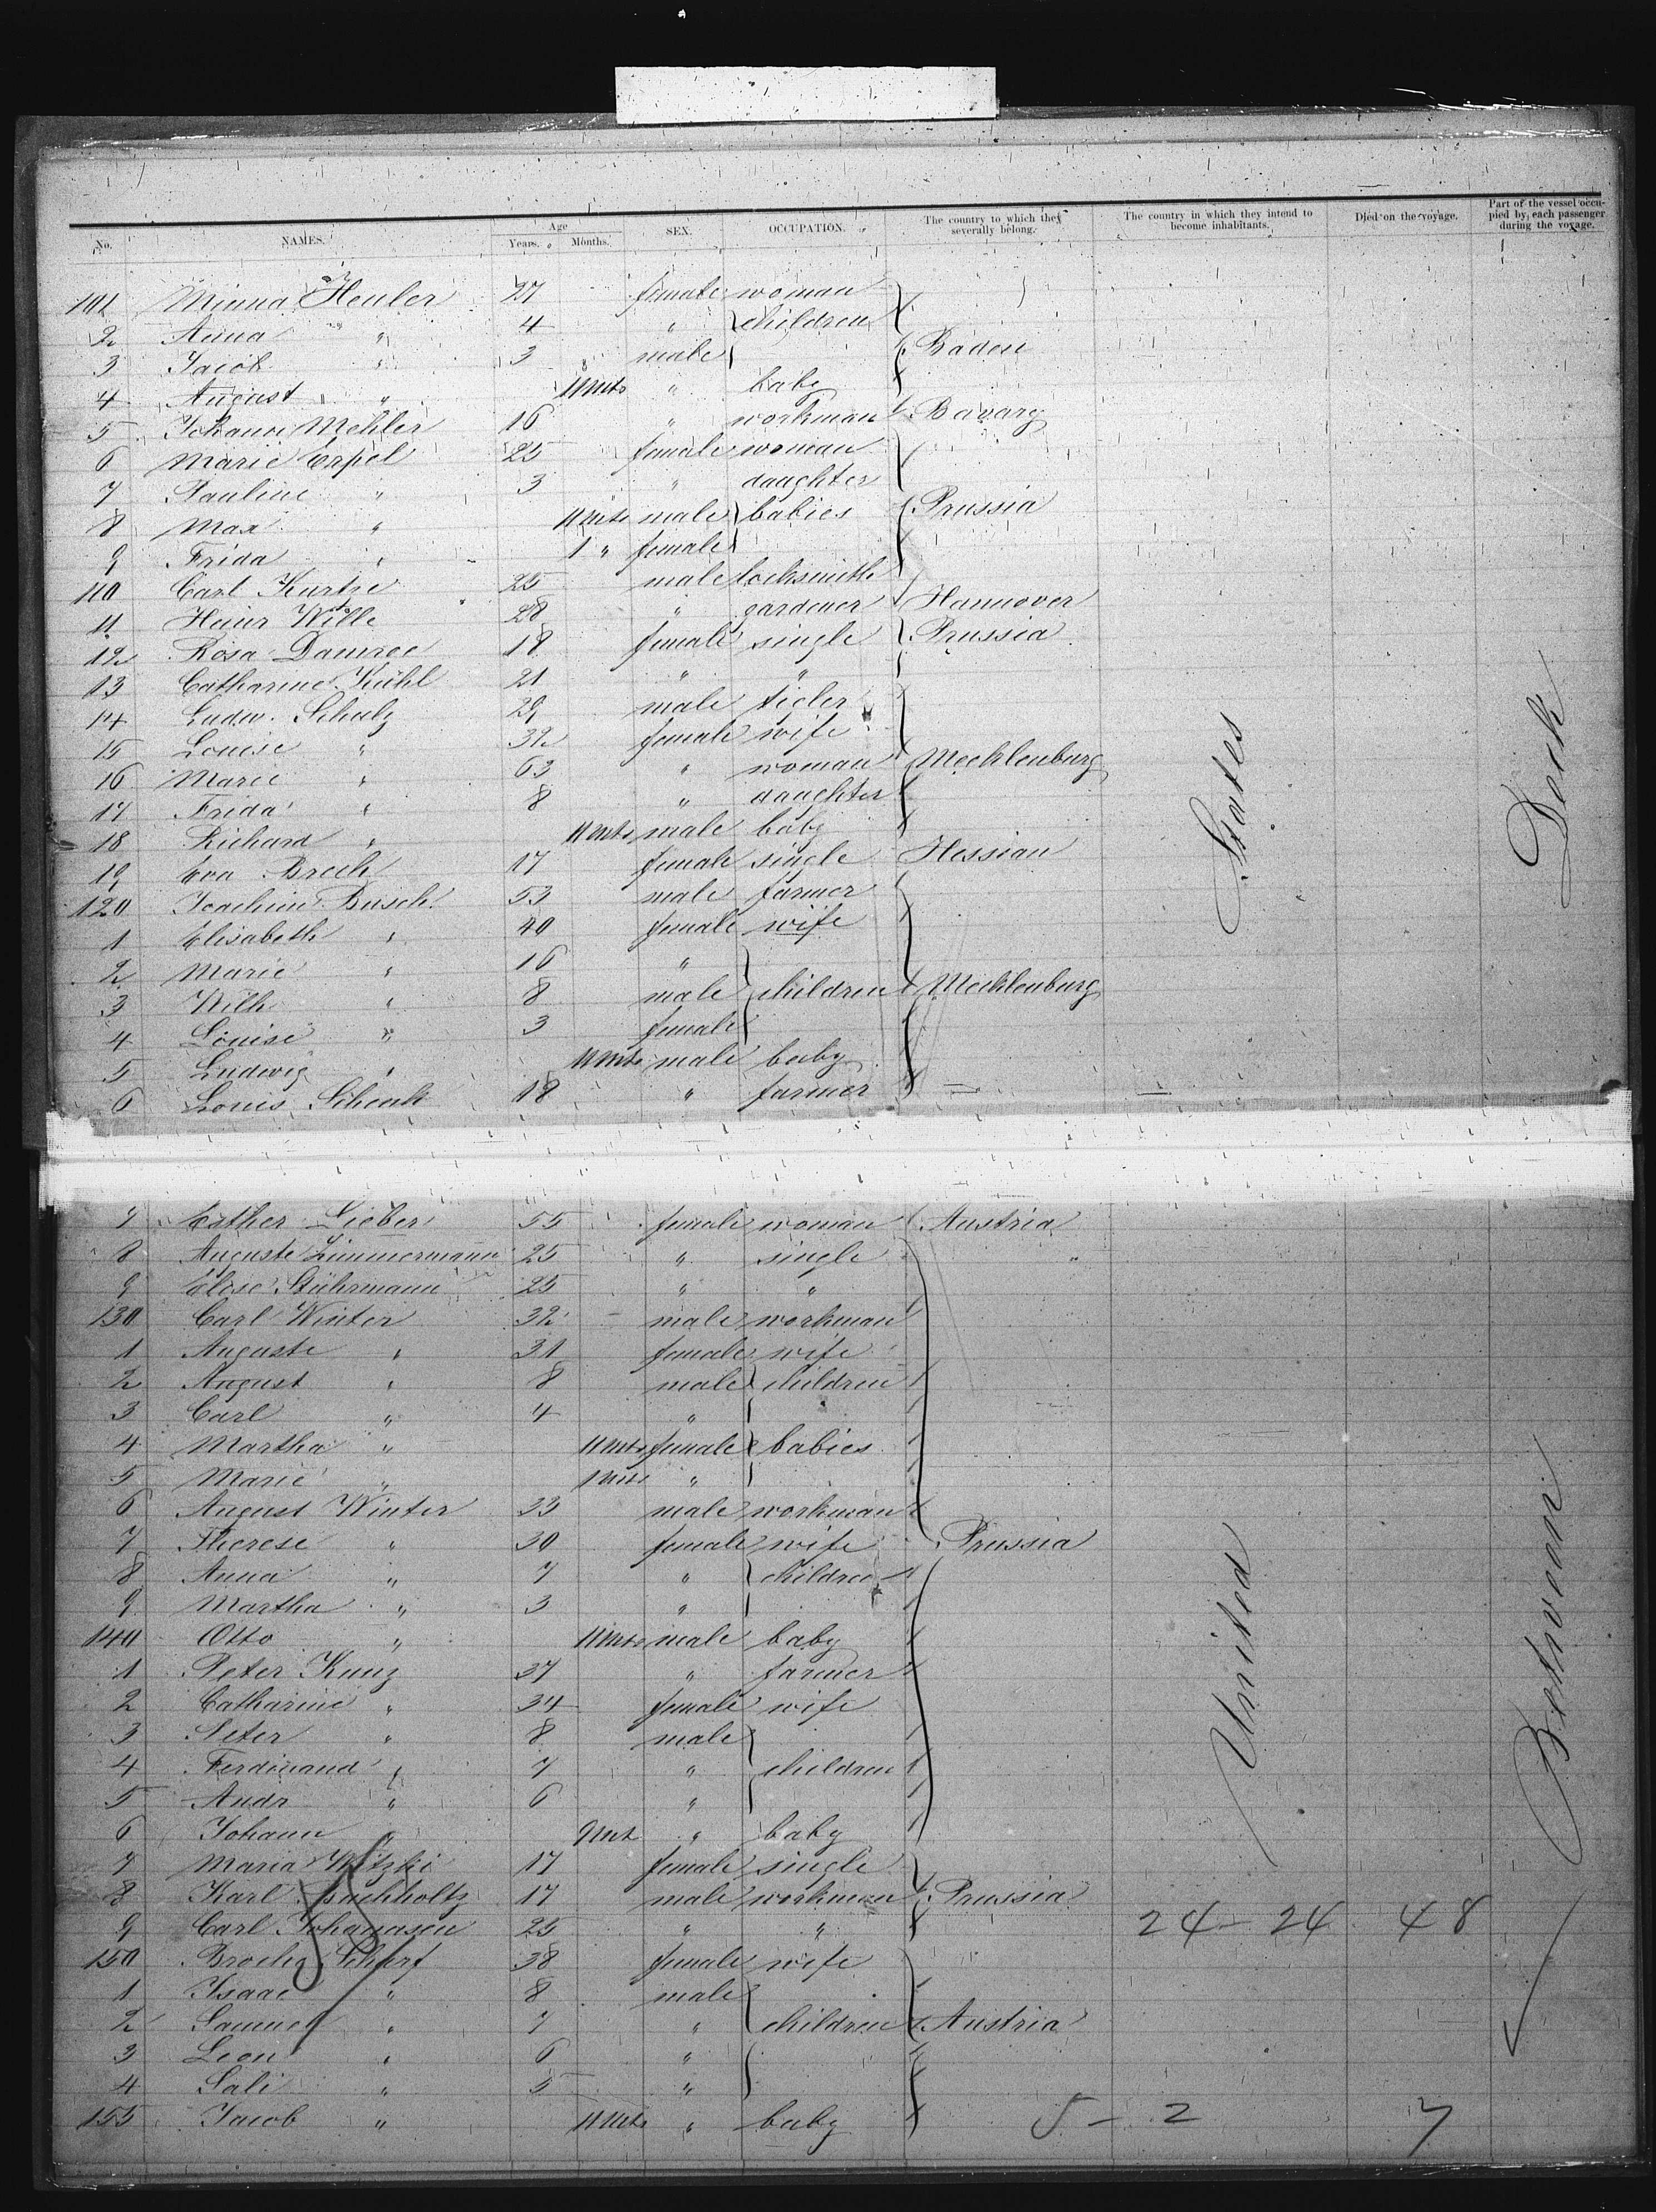 No. NAMES. Age Years. Months. SEX. OCCUPATION. The country to which they severally belong. The country in which they intend to become inhabitants. Died on the voyage. Part of the vessel occupied by each passenger during the voyage.
101 Minna Heuler 27 female woman
2 Anna " 4 " children
3 Jacob " 3 male Baden
4 August " 11 mts " baby
5 Johann Mehler 16 " workman Bavary
6 Marie Erpel 25 female woman
7 Pauline " 3 " daughter
8 Max " 11 mts male babies Prussia
9 Frida " 1 " female
110 Carl Kurtze 25 male locksmith
11 Heinr Wille 28 " gardener Hannover
12 Rosa Damroe 18 female single Prussia
13 Catharine Kühl 21 " "
14 Ludw. Schulz 29 male tieler
15 Louise " 32 female wife
16 Marie " 63 " woman Mecklenburg
17 Frida " 8 " daughter
18 Richard " 11 mts male baby
19 Eva Brech 17 female single Hessian
120 Joachim Busch 53 male farmer
1 Elisabeth " 40 female wife
2 Marie " 16 "
3 Wilh " 8 male children Mecklenburg
4 Louise " 3 female
5 Ludwig " 11 mts male baby
6 Louis Schenk 18 " farmer — —
7 Esther Lieber 55 female woman Austria
8 Auguste Zimmermann 25 " single "
9 Elise Stührmann 25 " "
130 Carl Winter 32 male workman
1 Auguste " 31 female wife
2 August " 8 male children
3 Carl " 4 "
4 Martha " 11 mts female babies
5 Marie " 1 mts "
6 August Winter 33 male workman
7 Therese " 30 female wife Prussia
8 Anna " 7 " children
9 Martha " 3 "
140 Otto " 11 mts male baby
1 Peter Kunz 37 " farmer
2 Catharine " 34 female wife
3 Peter " 8 male
4 Ferdinand " 7 " children
5 Andr " 6 "
6 Johann " 9 mts " baby
7 Maria Witzki 17 female single
8 Karl Buchholtz 17 male workman Prussia
9 Carl Johannsen 25 " " 24 - 24 48
150 Broche Scharf 38 female wife
1 Isaac " 8 male
2 Samuel " 7 " children Austria
3 Leon " 6 "
4 Sali " 5 "
155 Jacob " 11 mts " baby 5 - 2 7
United States
Between Deck